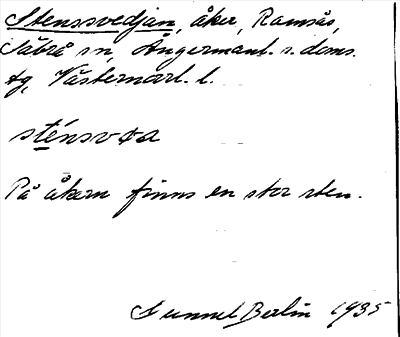 Stenssvedjan, åker, Ramsås,
Säbrå sn, Ångermanl. s. doms.
tg, Västernorrl. l.
sténsvɑa
På åkern finns en stor sten.
Gunnel Berlin 1935